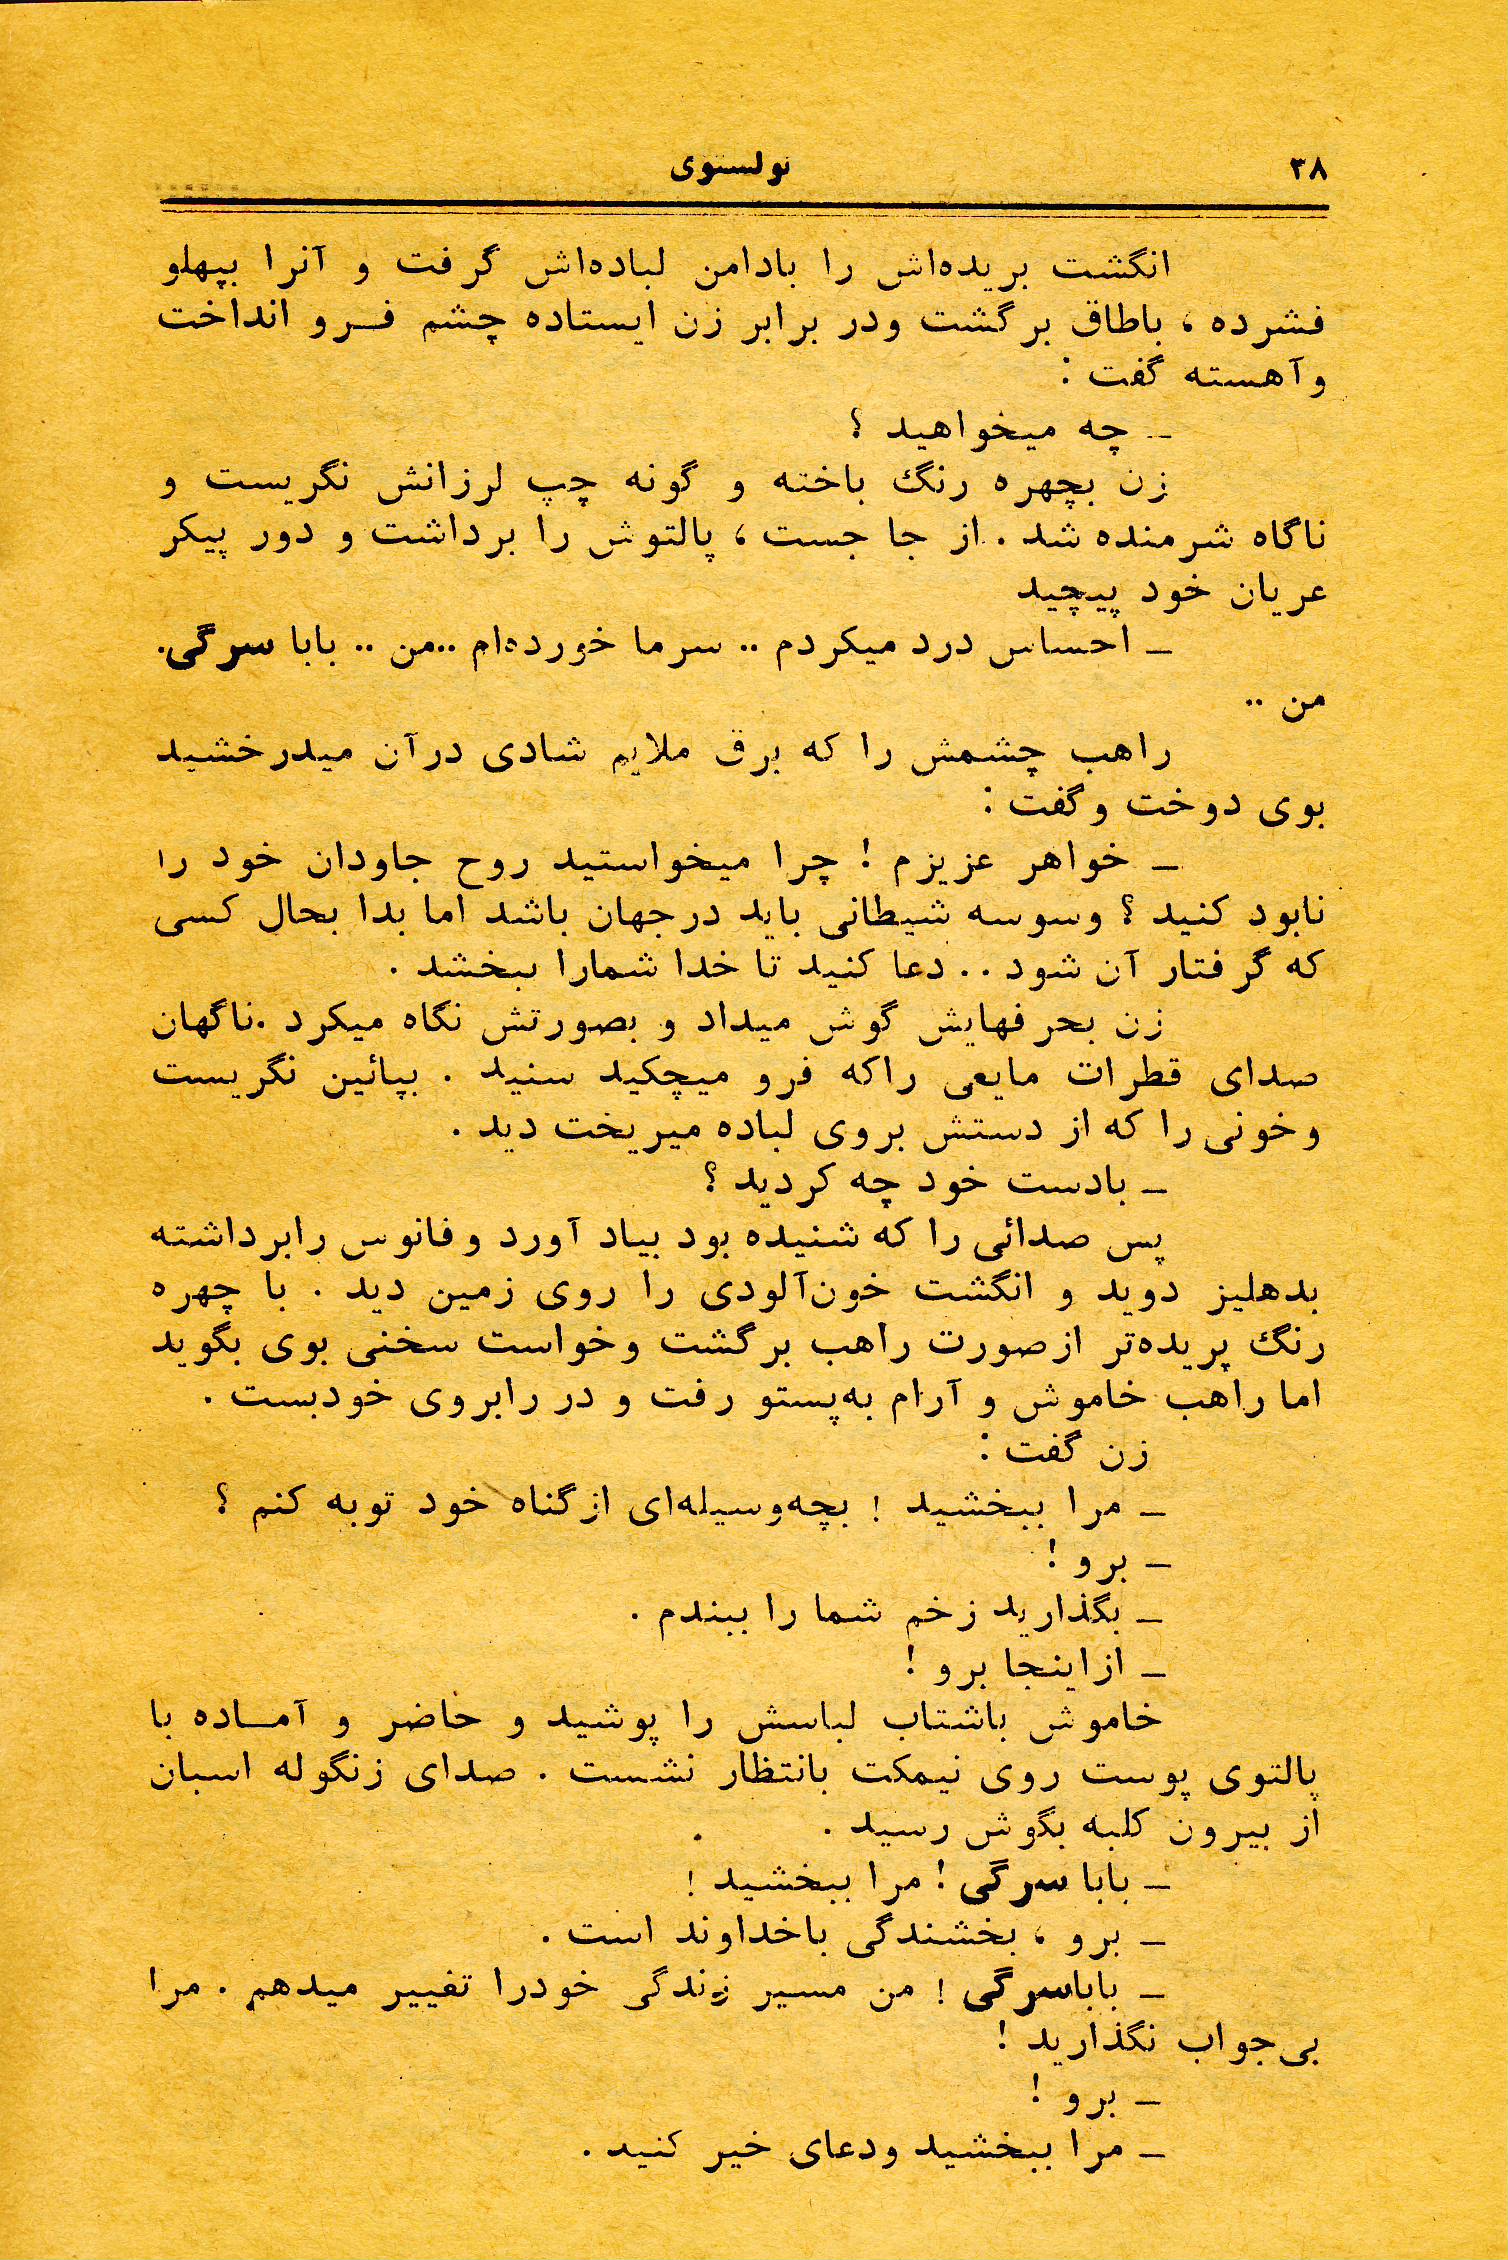 ۳۸
تولستوی
انگشت بریده‌اش را بادامن لباده‌اش گرفت و آنرا بپهلو
فشرده ، باطاق برگشت ودر برابر زن ایستاده چشم فـرو انداخت
وآهسته گفت :
ـ چه میخواهید ؟
زن بچهره رنگ باخته و گونه چپ لرزانش نگریست و
ناگاه شرمنده شد . از جا جست ، پالتوش را برداشت و دور پیکر
عریان خود پیچید
ـ احساس درد میکردم .. سرما خورده‌ام ..من .. بابا سرگی.
من ..
راهب چشمش را که برق ملایم شادی درآن میدرخشید
بوی دوخت وگفت :
ـ خواهر عزیزم ! چرا میخواستید روح جاودان خود را
نابود کنید ؟ وسوسه شیطانی باید درجهان باشد اما بدا بحال کسی
که گرفتار آن شود .. دعا کنید تا خدا شمارا ببخشد .
زن بحرفهایش گوش میداد و بصورتش نگاه میکرد .ناگهان
صدای قطرات مایعی راکه فرو میچکید سنید . بپائین نگریست
وخونی را که از دستش بروی لباده میریخت دید .
ـ بادست خود چه کردید ؟
پس صدائی را که شنیده بود بیاد آورد وفانوس رابرداشته
بدهلیز دوید و انگشت خون‌آلودی را روی زمین دید . با چهره
رنگ پریده‌تر ازصورت راهب برگشت وخواست سخنی بوی بگوید
اما راهب خاموش و آرام به‌پستو رفت و در رابروی خودبست .
زن گفت :
ـ مرا ببخشید ! بچه‌وسیله‌ای ازگناه خود توبه کنم ؟
ـ برو !
ـ بگذارید زخم شما را ببندم .
ـ ازاینجا برو !
خاموش باشتاب لباسش را پوشید و حاضر و آمـاده با
پالتوی پوست روی نیمکت بانتظار نشست . صدای زنگوله اسبان
از بیرون کلبه بگوش رسید .
ـ بابا سرگی ! مرا ببخشید !
ـ برو ، بخشندگی باخداوند است .
ـ باباسرگی ! من مسیر زندگی خودرا تغییر میدهم . مرا
بی‌جواب نگذارید !
ـ برو !
ـ مرا ببخشید ودعای خیر کنید .